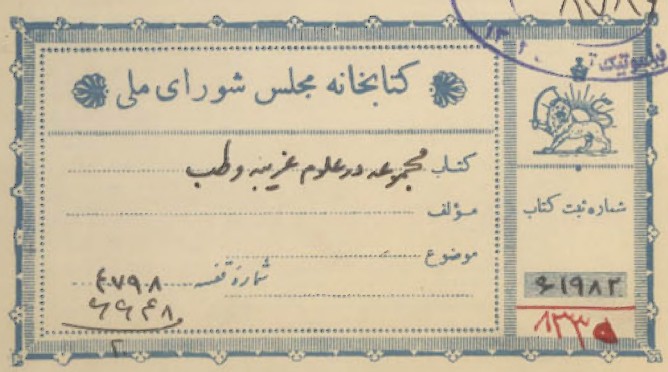 کتابخانه مجلس شورای ملی
کتاب مجموعه در علوم غریبه و طب
مؤلف
موضوع
شماره قفسه ۴۷۹۰۸
۶۶۴۸
۲
شماره ثبت کتاب
۶۱۹۸۲